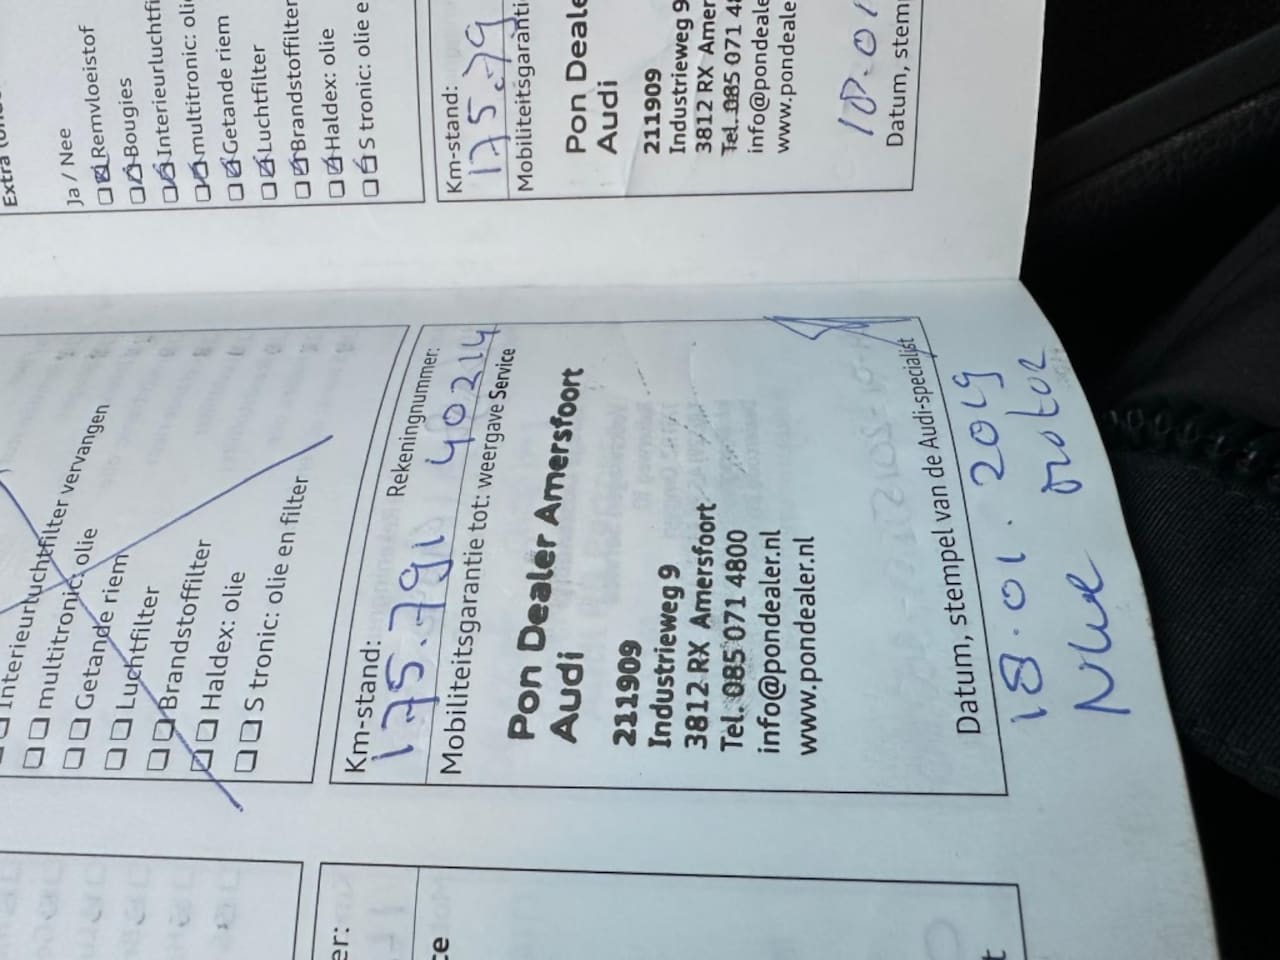 Extra (on
Ja / Nee
Remvloeistof
Bougies
Interieurluchtfi
multitronic: oli
Getande riem
Luchtfilter
Brandstoffilter
Haldex: olie
S tronic: olie e
Km-stand:
175.79
Mobiliteitsgaranti
Pon Deale
Audi
211909
Industrieweg 9
3812 RX Amer
Tel. 085 071 48
info@pondeale
www.pondeale
18.01
Datum, stem
Interieurluchtfilter vervangen
multitronic: olie
Getande riem
Luchtfilter
Brandstoffilter
Haldex: olie
S tronic: olie en filter
Km-stand: Rekeningnummer:
175.791 40214
Mobiliteitsgarantie tot: weergave Service
Pon Dealer Amersfoort
Audi
211909
Industrieweg 9
3812 RX Amersfoort
Tel. 085 071 4800
info@pondealer.nl
www.pondealer.nl
Datum, stempel van de Audi-specialist
18.01.2019
motor
er:
ce
t